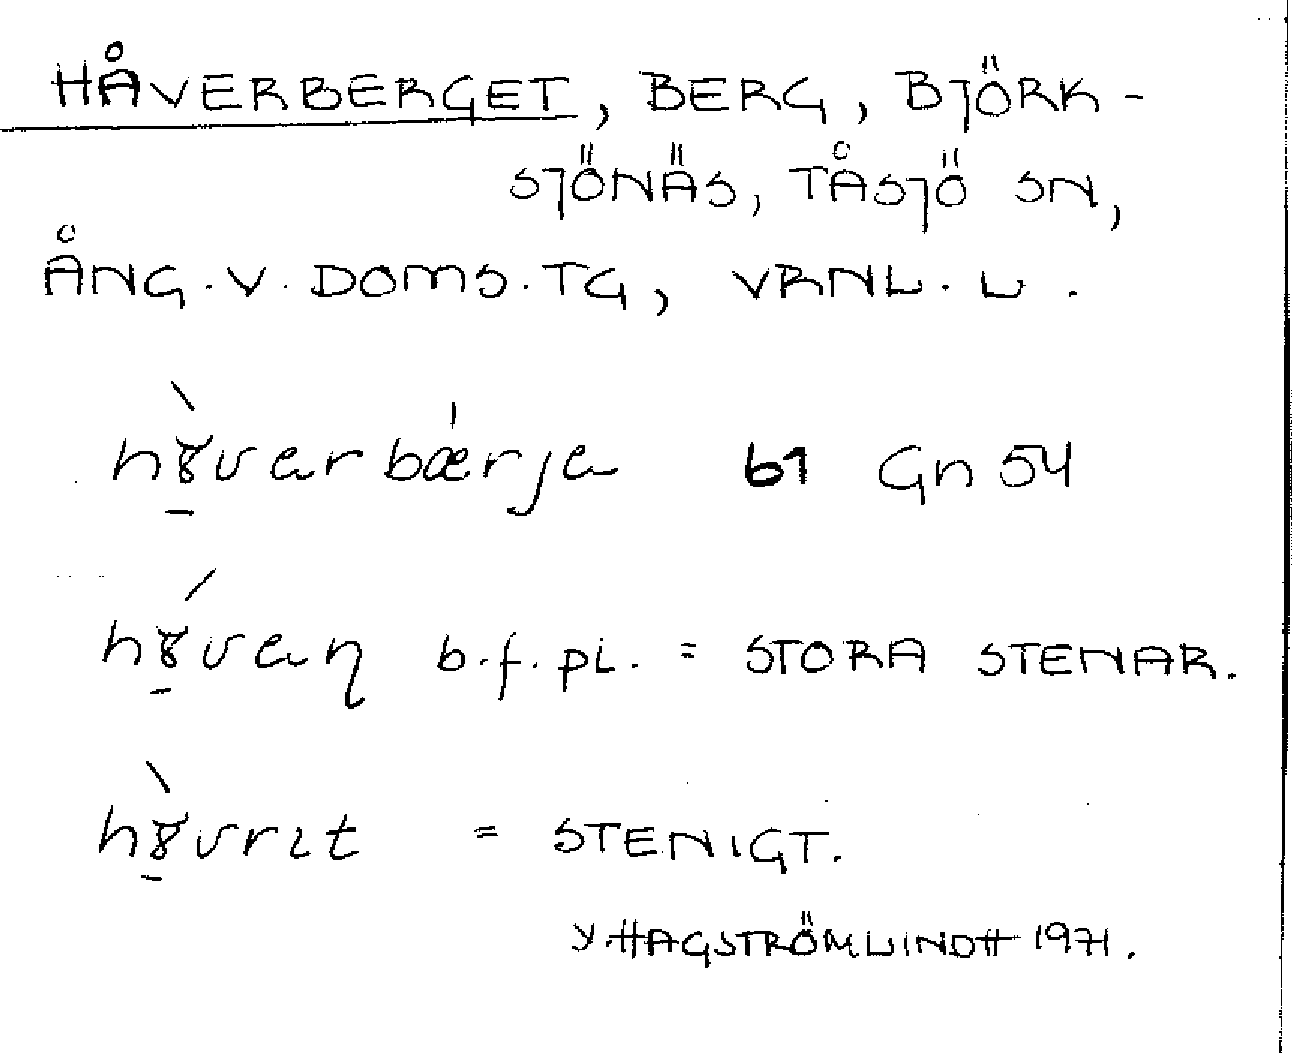 HÅVERBERGET, BERG, BJÖRK-
SJÖNÄS, TÅSJÖ SN,
ÅNG. V. DOMS. TG, VRNL. L.
hɤ̠̀varbǽrja b1 Gn 54
hɤ̠́vaɳ b.f. pl. = STORA STENAR.
hɤ̠̀vrɩt = STENIGT.
Y. HAGSTRÖM LINDH 1971.